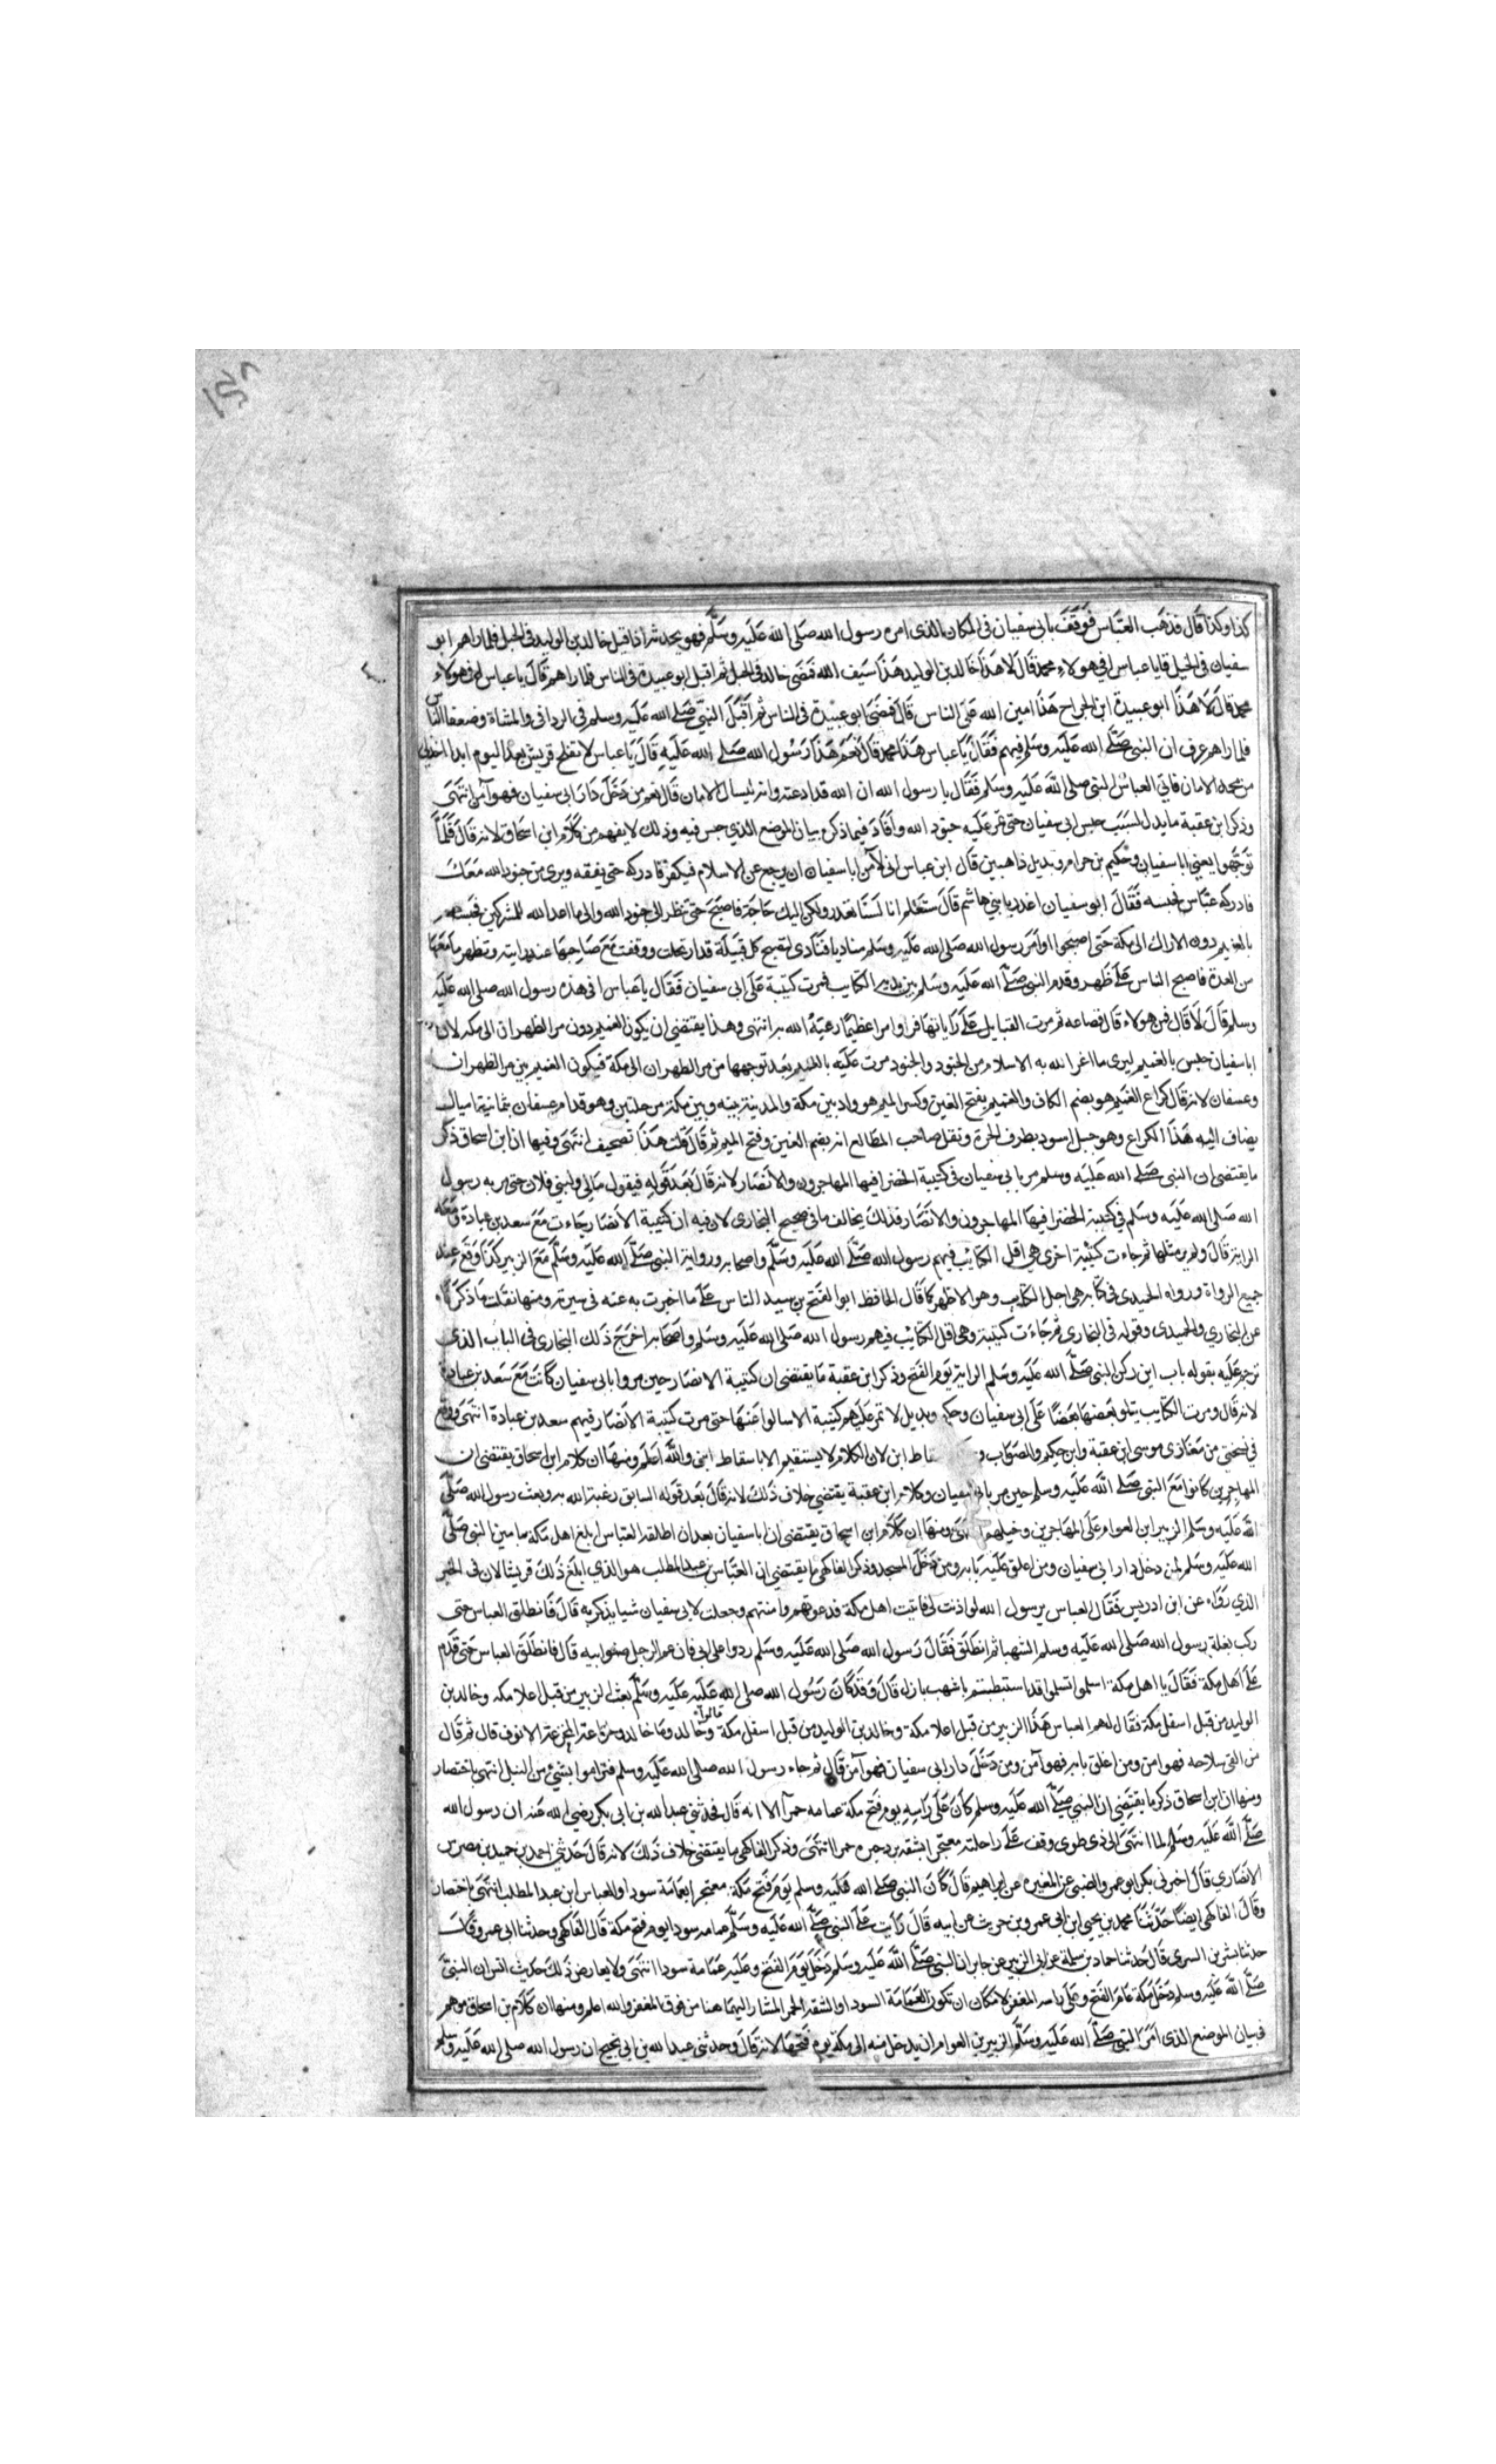 كذا وكذا قال فذهب العباس فوقف بابي سفيان في المكان الذي امره رسول الله صلى الله عليه وسلم فهو يحدثه اذ اقبل خالد بن الوليد في الخيل فلما راهم ابو
سفيان في الخيل قال يا عباس افي هولاء محمد قال لا هذا خالد بن الوليد هذا سيف الله فمضى خالد في الخيل ثم اقبل ابو عبيدة في الناس فلما راهم قال يا عباس افي هولاء
محمد قال لا هذا ابو عبيدة ابن الجراح هذا امين الله على الناس قال فمضى ابو عبيدة في الناس ثم اقبل النبي صلى الله عليه وسلم في الردافى والمشاة وضعفا الناس
فلما راهم عرف ان النبي صلى الله عليه وسلم فيهم فقال يا عباس هذا محمد قال نعم هذا رسول الله صلى الله عليه قال يا عباس لا تفلح قريش بعد اليوم ابدا
من محمد الامان فاتى العباس النبي صلى الله عليه وسلم فقال يا رسول الله ان الله قد ادعته وانه يسال الامان قال نعم من دخل دار ابي سفيان فهو آمن انتهى
وذكر ابن عقبة ما يدل لسبب حبس ابي سفيان حتى تمر عليه جنود الله وافاد فيما ذكره بيان الموضع الذي حبس فيه وذلك لا يفهم من كلام ابن اسحاق لانه قال فلما
توجهوا يعني ابا سفيان وحكيم بن حزام وبديل ذاهبين قال ابن عباس اني لا آمن ابا سفيان ان يرجع عن الاسلام فيكفر فادركه حتى يفقه ويرى من جنود الله معك
فادركه عباس فحبسه فقال ابو سفيان اغدر يا بني هاشم قال ستعلم انا لسنا نغدر ولكن لي اليك حاجة فاصبح حتى تنظر الى جنود الله والى ما اعد الله للمشركين فحبسهم
بالغميم دون الاراك الى مكة حتى اصبحوا وامر رسول الله صلى الله عليه وسلم مناديا فنادى لتصبح كل قبيلة قد ارتحلت ووقفت مع صاحبها عند رايته وتظهر ما معها
من العدة فاصبح الناس على ظهر وقدم النبي صلى الله عليه وسلم بين يديه الكتايب فمرت كتيبة على ابي سفيان فقال يا عباس افي هذه رسول الله صلى الله عليه
وسلم قال لا قال فمن هولاء قال قضاعه ثم مرت القبايل على راياتها فراوا امرا عظيما رعبه الله به انتهى وهذا يقتضي ان يكون الغميم دون مر الظهران الى مكه لان
ابا سفيان حبس بالغميم ليرى ما اعز الله به الاسلام من الجنود والجنود مرت عليه بالغميم بعد توجهها من مر الظهران الى مكة فيكون الغميم بين مر الظهران
وعسفان لانه قال كراع الغميم هو بضم الكاف والغميم بفتح الغين وكسر الميم هو واد بين مكة والمدينة بينه وبين مكة مرحلتين وهو قدام عسفان بثمانية اميال
يضاف اليه هذا الكراع وهو جبل اسود بطرف الحرة ونقل صاحب المطالع انه بضم الغين وفتح الميم ثم قال قلت هذا تصحيف انتهى وفيها ان ابن اسحاق ذكر
ما يقتضي ان النبي صلى الله عليه وسلم مر بابي سفيان في كتيبة الخضرا فيها المهاجرون والانصار لانه قال بعد قوله فيقول مالي ولبني فلان حتى مر به رسول
الله صلى الله عليه وسلم في كتيبة الخضرا فيها المهاجرون والانصار فذلك يخالف ما في صحيح البخاري لان فيه ان كتيبة الانصار جاءت مع سعد بن عبادة ومعه
الراية قال ولم ير مثلها ثم جاءت كتيبة اخرى هي اقل الكتايب فيهم رسول الله صلى الله عليه وسلم واصحابه وراية النبي صلى الله عليه وسلم مع الزبير كذا وقع عند
جميع الرواة ورواه الحميدي في كتابه هي اجل الكتايب وهو الاظهر كما قال الحافظ ابو الفتح بن سيد الناس على ما اخبرت به عنه في سيرته ومنها نقلت ما ذكرناه
عن البخاري والحميدي وقوله في البخاري ثم جاءت كتيبة وهي اقل الكتايب فيهم رسول الله صلى الله عليه وسلم واصحابه اخرج ذلك البخاري في الباب الذي
ترجم عليه بقوله باب اين ركز النبي صلى الله عليه وسلم الراية يوم الفتح وذكر ابن عقبة ما يقتضي ان كتيبة الانصار حين مروا بابي سفيان كانت مع سعد بن عبادة
لانه قال ومرت الكتايب يتلو بعضها بعضا على ابي سفيان وحكيم وبديل لا تمر عليهم كتيبة الا سالوا عنها حتى مرت كتيبة الانصار فيهم سعد بن عبادة انتهى ووقع
في نسختي من مغازي موسى ابن عقبة وابن حكيم والصواب اسقاط ابن لان الكلام لا يستقيم الا باسقاط ابن والله اعلم ومنها ان كلام ابن اسحاق يقتضي ان
المهاجرين كانوا مع النبي صلى الله عليه وسلم حين مر بابي سفيان وكلام ابن عقبة يقتضي خلاف ذلك لانه قال بعد قوله السابق رعبة الله به وبعث رسول الله صلى
الله عليه وسلم الزبير ابن العوام على المهاجرين وخيلهم انتهى ومنها ان كلام ابن اسحاق يقتضي ان ابا سفيان بعد ان اطلقه العباس ابلغ اهل مكة ما من النبي صلى
الله عليه وسلم لمن دخل دار ابي سفيان ومن اغلق عليه بابه ومن دخل المسجد وذكر الفاكهي ما يقتضي ان العباس بن عبد المطلب هو الذي ابلغ ذلك قريشا لان في الخبر
الذي رواه عن ابن ادريس فقال العباس يرسول الله لو اذنت لي فاتيت اهل مكة فدعوتهم وامنتهم وجعلت لابي سفيان شيا يذكر به قال فانطلق العباس حتى
ركب بغلة رسول الله صلى الله عليه وسلم الشهبا ثم انطلق فقال رسول الله صلى الله عليه وسلم ردوا علي ابي فان عم الرجل صنو ابيه قال فانطلق العباس حتى قدم
على اهل مكة فقال يا اهل مكة اسلموا تسلموا قد استبطنتم باشهب بازل قال وقد كان رسول الله صلى الله عليه عليه وسلم بعث الزبير من قبل اعلا مكه وخالد بن
الوليد من قبل اسفل مكة فقال لهم العباس هذا الزبير من قبل اعلا مكة وخالد بن الوليد من قبل اسفل مكة وخالد وما خالد قال ثم قال
من القى سلاحه فهو امن ومن اغلق بابه فهو آمن ومن دخل دار ابي سفيان فهو آمن قال ثم جاء رسول الله صلى الله عليه وسلم فتراموا بشيء من النبل انتهى باختصار
ومنها ان ابن اسحاق ذكر ما يقتضي ان النبي صلى الله عليه وسلم كان على راسه يوم فتح مكة عمامه حمرا لانه قال فحدثني عبد الله بن ابي بكر رضي الله عنه ان رسول الله
صلى الله عليه وسلم لما انتهى الى ذي طوى وقف على راحلته معتجرا بشقة برد حبره حمرا انتهى وذكر الفاكهي ما يقتضي خلاف ذلك لانه قال حدثني احمد بن حميد
الانصاري قال اخبرني بكر ابو عمرو الضبي عن المغيره عن ابراهيم قال كان النبي صلى الله عليه وسلم يوم فتح مكة معتجرا بعمامة سودا والعباس ابن عبد المطلب انتهى باختصار
وقال الفاكهي ايضا حدثنا محمد بن يحيى ابن ابي عمر وبن حريث عن ابيه قال رايت على النبي صلى الله عليه وسلم عمامه سودا يوم فتح مكة قال الفاكهي وحدثنا ابن ابي عمر وقال
حدثنا بشر بن السري قال حدثنا حماد بن سلمة عن ابي الزبير عن جابر ان النبي صلى الله عليه وسلم دخل يوم الفتح وعليه عمامة سودا انتهى ولا يعارض ذلك حديث انس ان النبي
صلى الله عليه وسلم دخل مكة عام الفتح وعلى راسه المغفر لامكان ان تكون العمامة السودا والشقة الحمرا المشار اليهما هنا من فوق المغفر والله اعلم ومنها ان كلام بن اسحاق
في بيان الموضع الذي امر النبي صلى الله عليه وسلم الزبير بن العوام ان يدخل منه الى مكة يوم فتحها لانه قال وحدثني عبد الله بن ابي نجيح ان رسول الله صلى الله عليه وسلم